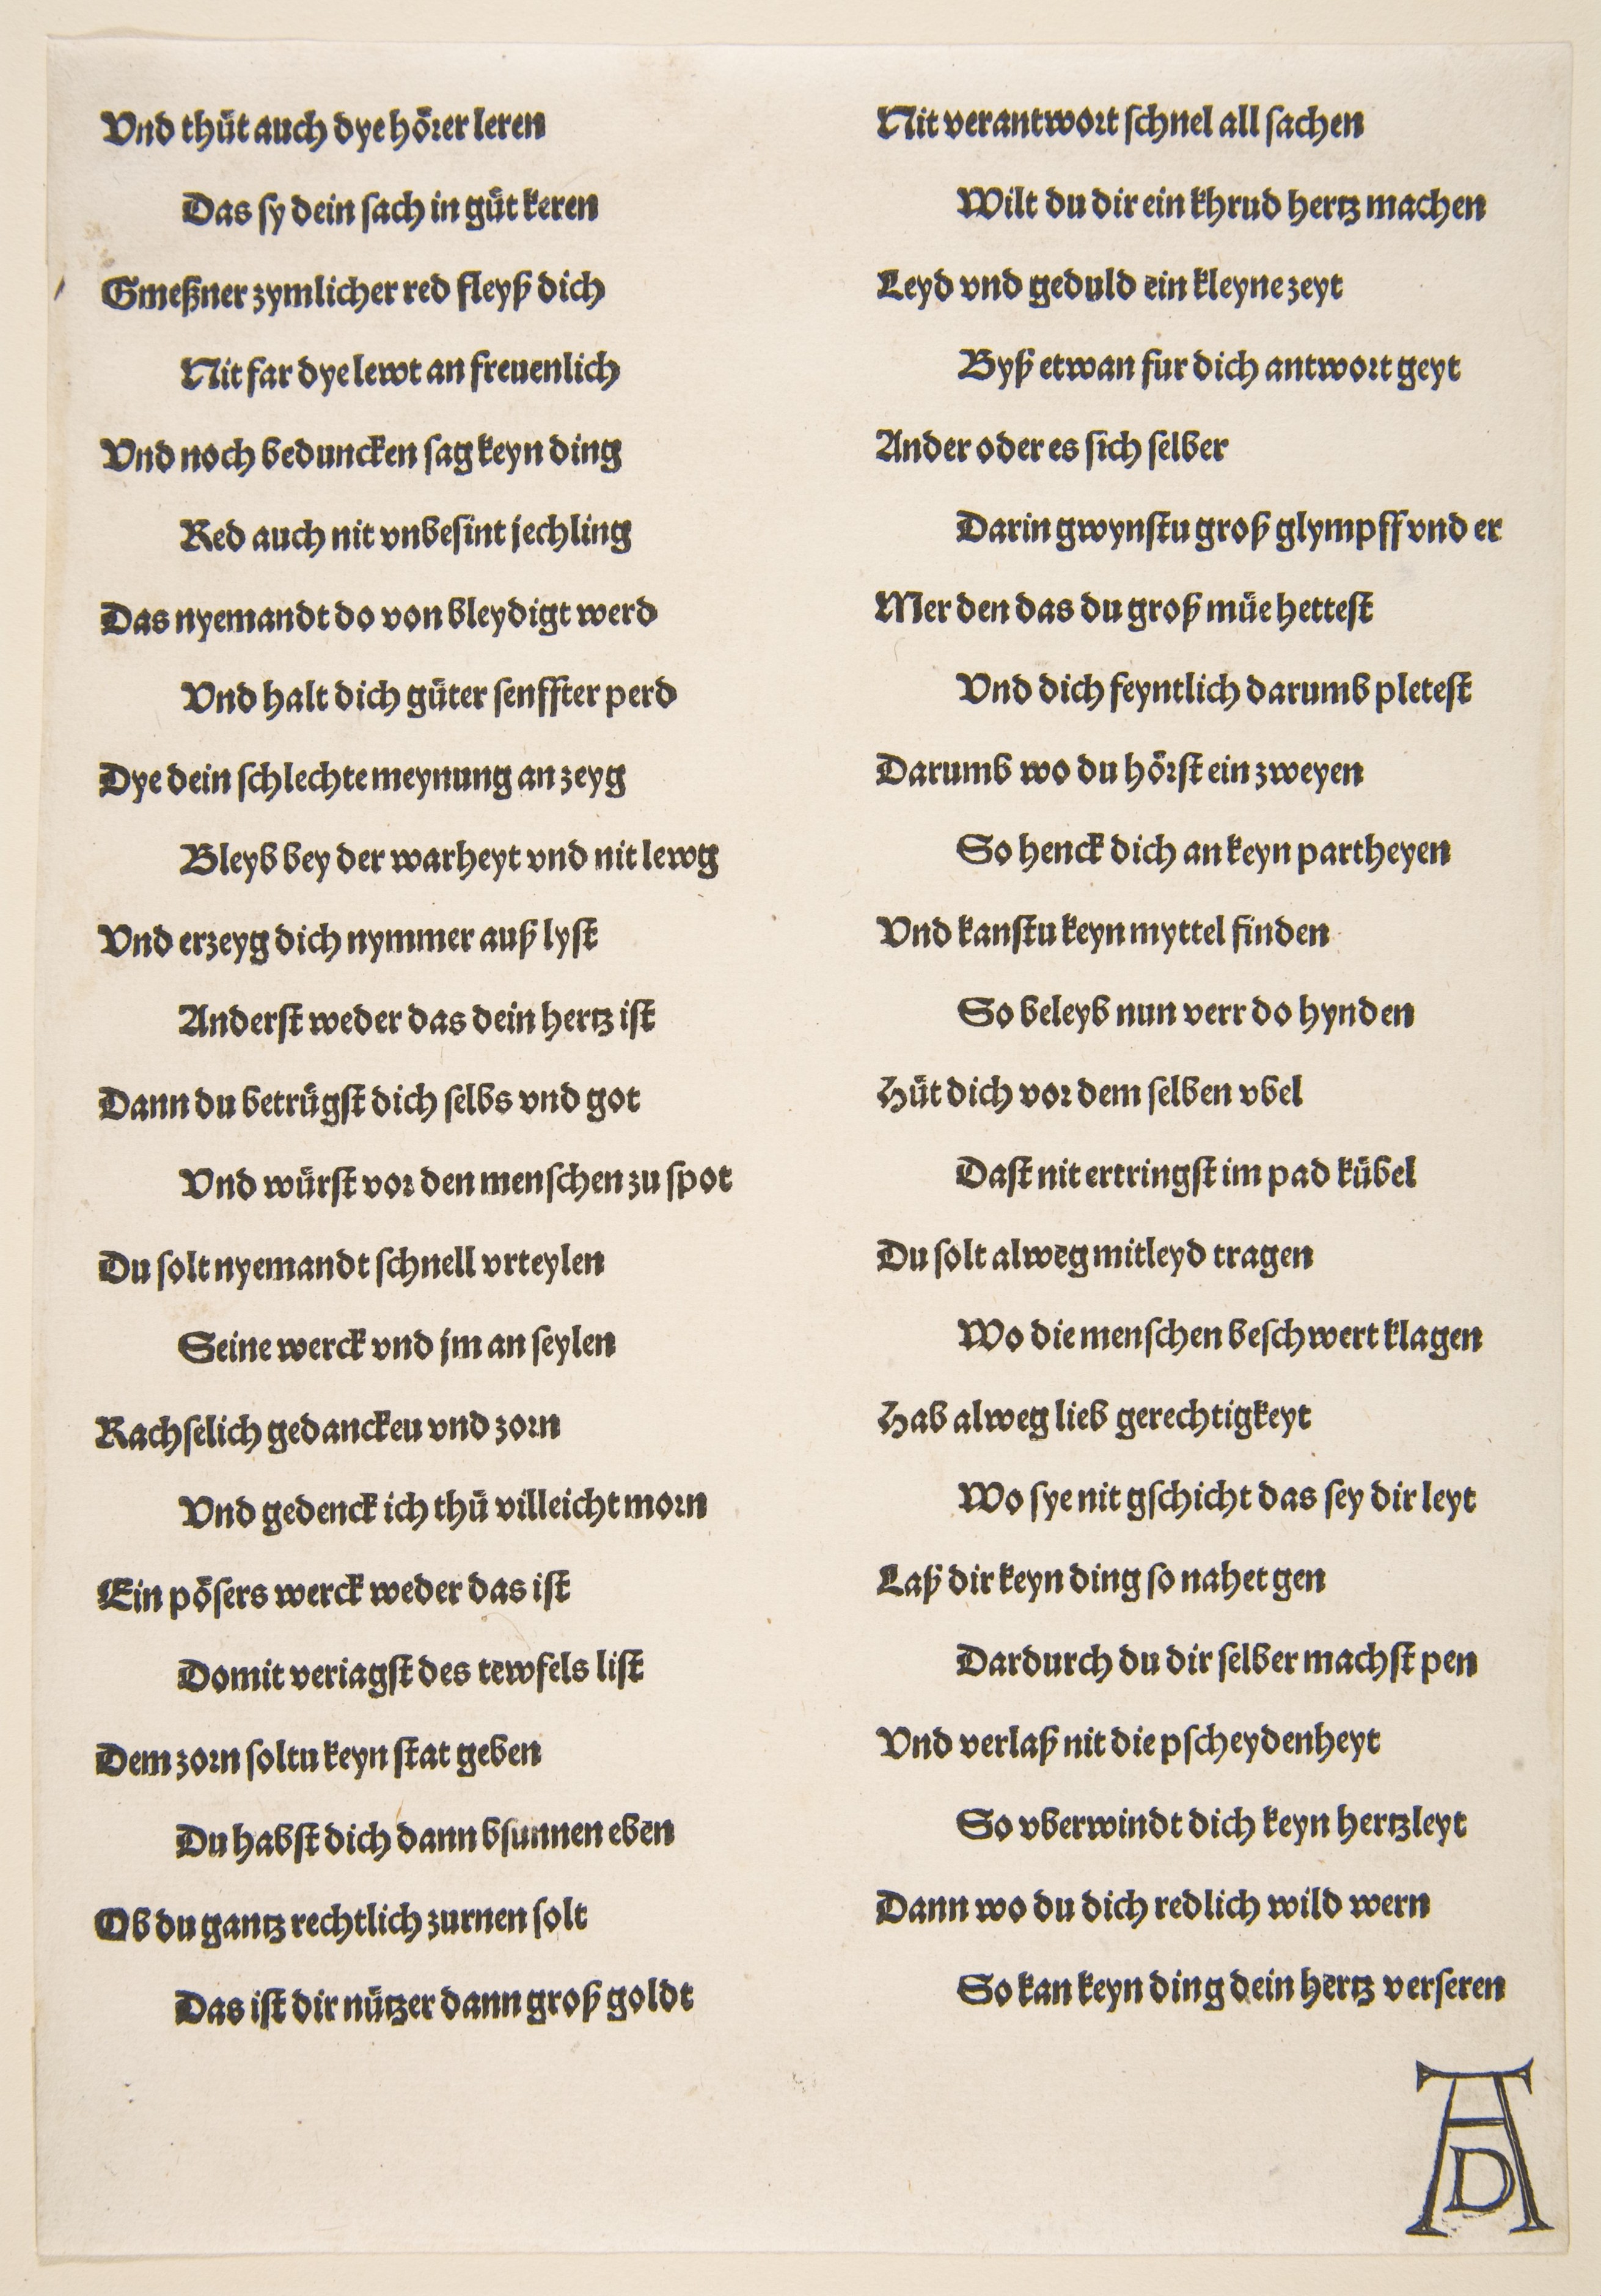 Vnd thuͤt auch dye hoͤrer leren
Das sy dein sach in guͤt keren
Gmeßner zymlicher red fleyß dich
Nit far dye lewt an freuenlich
Vnd noch beduncken sag keyn ding
Red auch nit vnbesint jechling
Das nyemandt do von bleydigt werd
Vnd halt dich guͤter senffter perd
Dye dein schlechte meynung an zeyg
Bleyb bey der warheyt vnd nit lewg
Vnd erzeyg dich nymmer auß lyst
Anderst weder das dein hertz ist
Dann du betruͤgst dich selbs vnd got
Vnd wuͤrst vor den menschen zu spot
Du solt nyemandt schnell vrteylen
Seine werck vnd jm an seylen
Rachselich gedanckeu vnd zorn
Vnd gedenck ich thuͤ villeicht morn
Ein poͤsers werck weder das ist
Domit veriagst des tewfels list
Dem zorn soltu keyn stat geben
Du habst dich dann bsunnen eben
Ob du gantz rechtlich zurnen solt
Das ist dir nuͤtzer dann groß goldt
Nit verantwort schnel all sachen
Wilt du dir ein khrud hertz machen
Leyd vnd geduld ein kleyne zeyt
Byß etwan fur dich antwort geyt
Ander oder es sich selber
Darin gwynstu groß glympff vnd er
Mer den das du groß muͤe hettest
Vnd dich feyntlich darumb pletest
Darumb wo du hoͤrst ein zweyen
So henck dich an keyn partheyen
Vnd kanstu keyn myttel finden
So beleyb nun verr do hynden
Huͤt dich vor dem selben vbel
Dast nit ertringst im pad kuͤbel
Du solt alweg mitleyd tragen
Wo die menschen beschwert klagen
Hab alweg lieb gerechtigkeyt
Wo sye nit gschicht das sey dir leyt
Laß dir keyn ding so nahet gen
Dardurch du dir selber machst pen
Vnd verlaß nit die pscheydenheyt
So vberwindt dich keyn hertzleyt
Dann wo du dich redlich wild wern
So kan keyn ding dein hertz verseren
AD